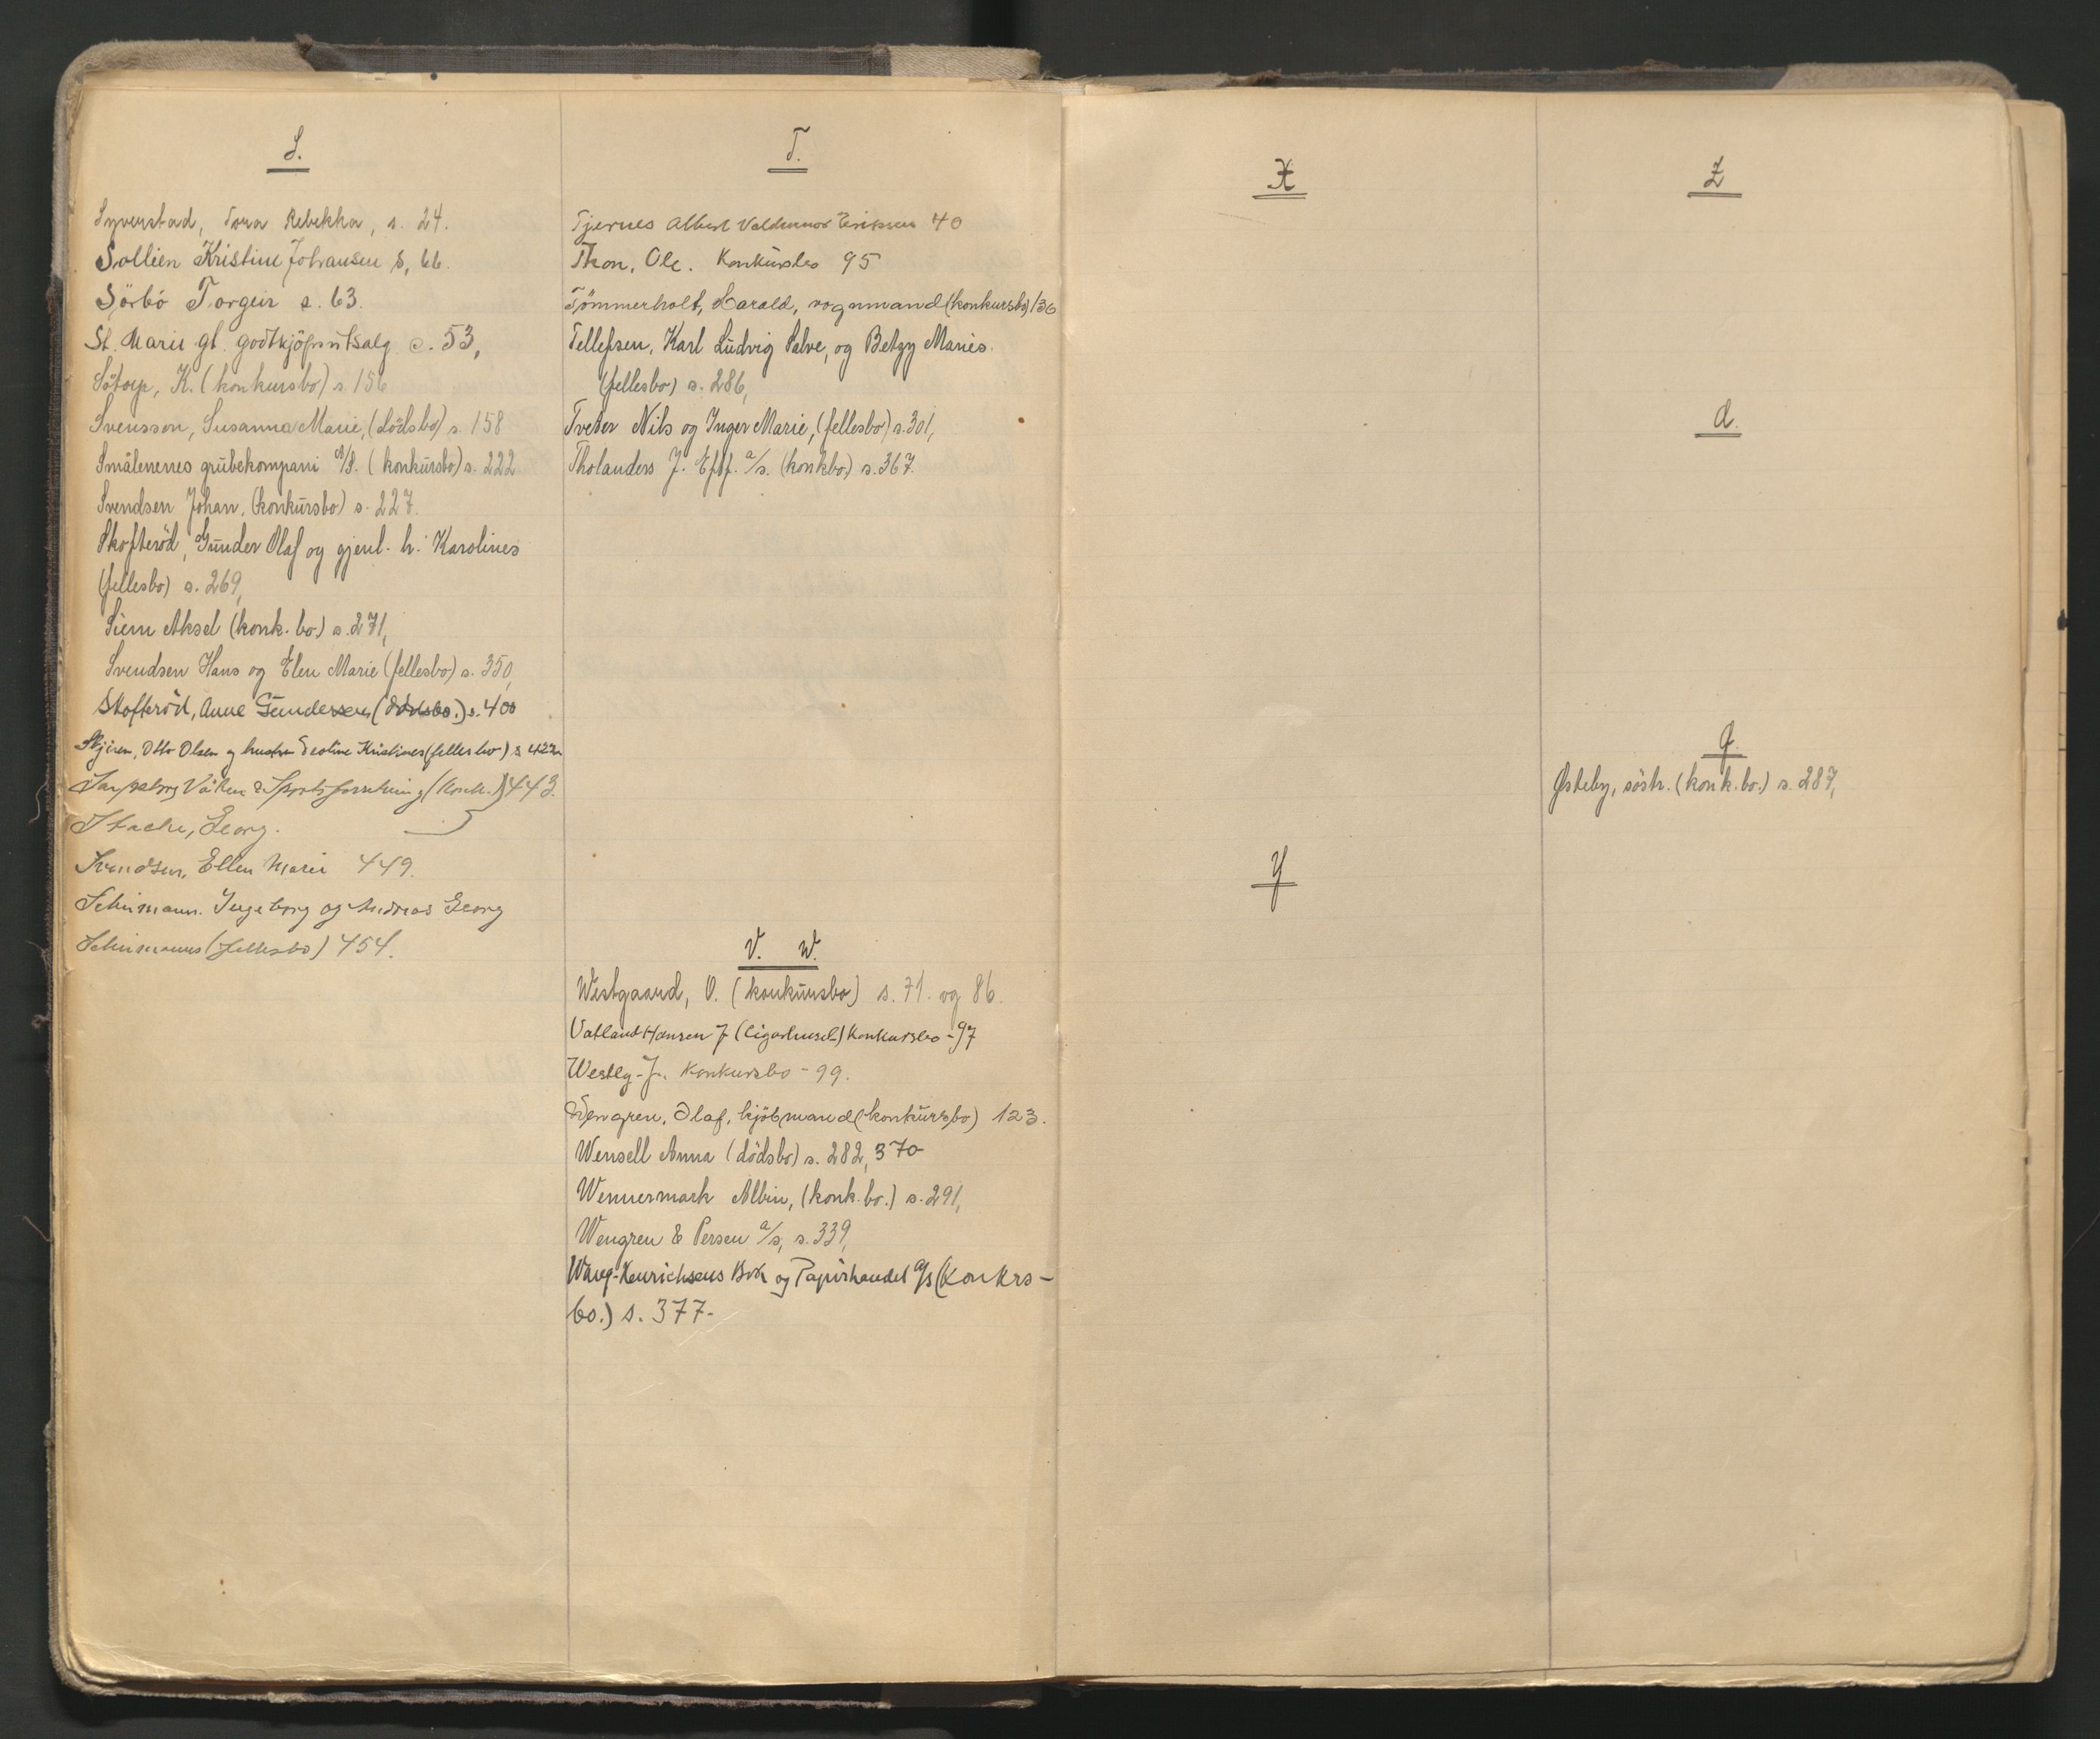 S.
Syverstad, Tora Rebekka, s. 24.
Sollien Kristine Johansen S, 66.
Sörbö Torgeir s. 63.
St. Marie gt. godtkjöpsutsalg s. 53,
Sötorp, K. (konkursbo) s. 156
Svensson, Susanna Marie, (dödsbo) s. 158
Smålenenes grubekompani A/S. (konkursbo) s. 222
Svendsen Johan. (konkursbo) s. 227.
Skofteröd, Gunder Olaf og gjenl. h. Karolines
(fellesbo) s. 269,
Siem Aksel (konk. bo.) s. 271,
Svendsen Hans og Elen Marie (fellesbo) s. 350,
Skofteröd, Anne Gundersen (dödsbo.) s. 400
Otto Olsen og hustru Kristines (fellesbo) s 422
Sarpsborg Våben & Sportsforretning (Konk.) 443.
Stache, Georg.
Svendsen, Ellen Marie 449.
Schumann. Ingeborg og Andreas Georg
Schumanns (fellesbo) 454.
T.
Tjernes Albert Valdemar Eriksen 40
Thon, Ole. Konkursbo 95
Tömmerholt, Harald, vognmand (konkursbo) 136
Tellefsen, Karl Ludvig Salve, og Betzy Maries.
(fellesbo) s. 286,
Tveter Nils og Inger Marie, (fellesbo) s. 301,
Tholanders J. Eftf. a/s. (konkbo) s. 367.
V. W.
Westgaard, O. (konkursbo) s. 71. og 86.
Vatland Hansen J (Cigarhuset) Konkursbo - 97
Westly - J. Konkursbo - 99.
Wengren, Olaf, kjöbmand (konkursbo) 123.
Wensell Anna (dödsbo) s. 282, 370
Wennermark Albin, (konk. bo.) s. 291,
Wengren & Persen a/s, s. 339,
Wang-Henrichsens Bok og Papirhandel A/S (Konkrs-
bo.) s. 377-
X
Y
Z
Ø.
Østeby, söstr. (konk. bo.) s. 287,